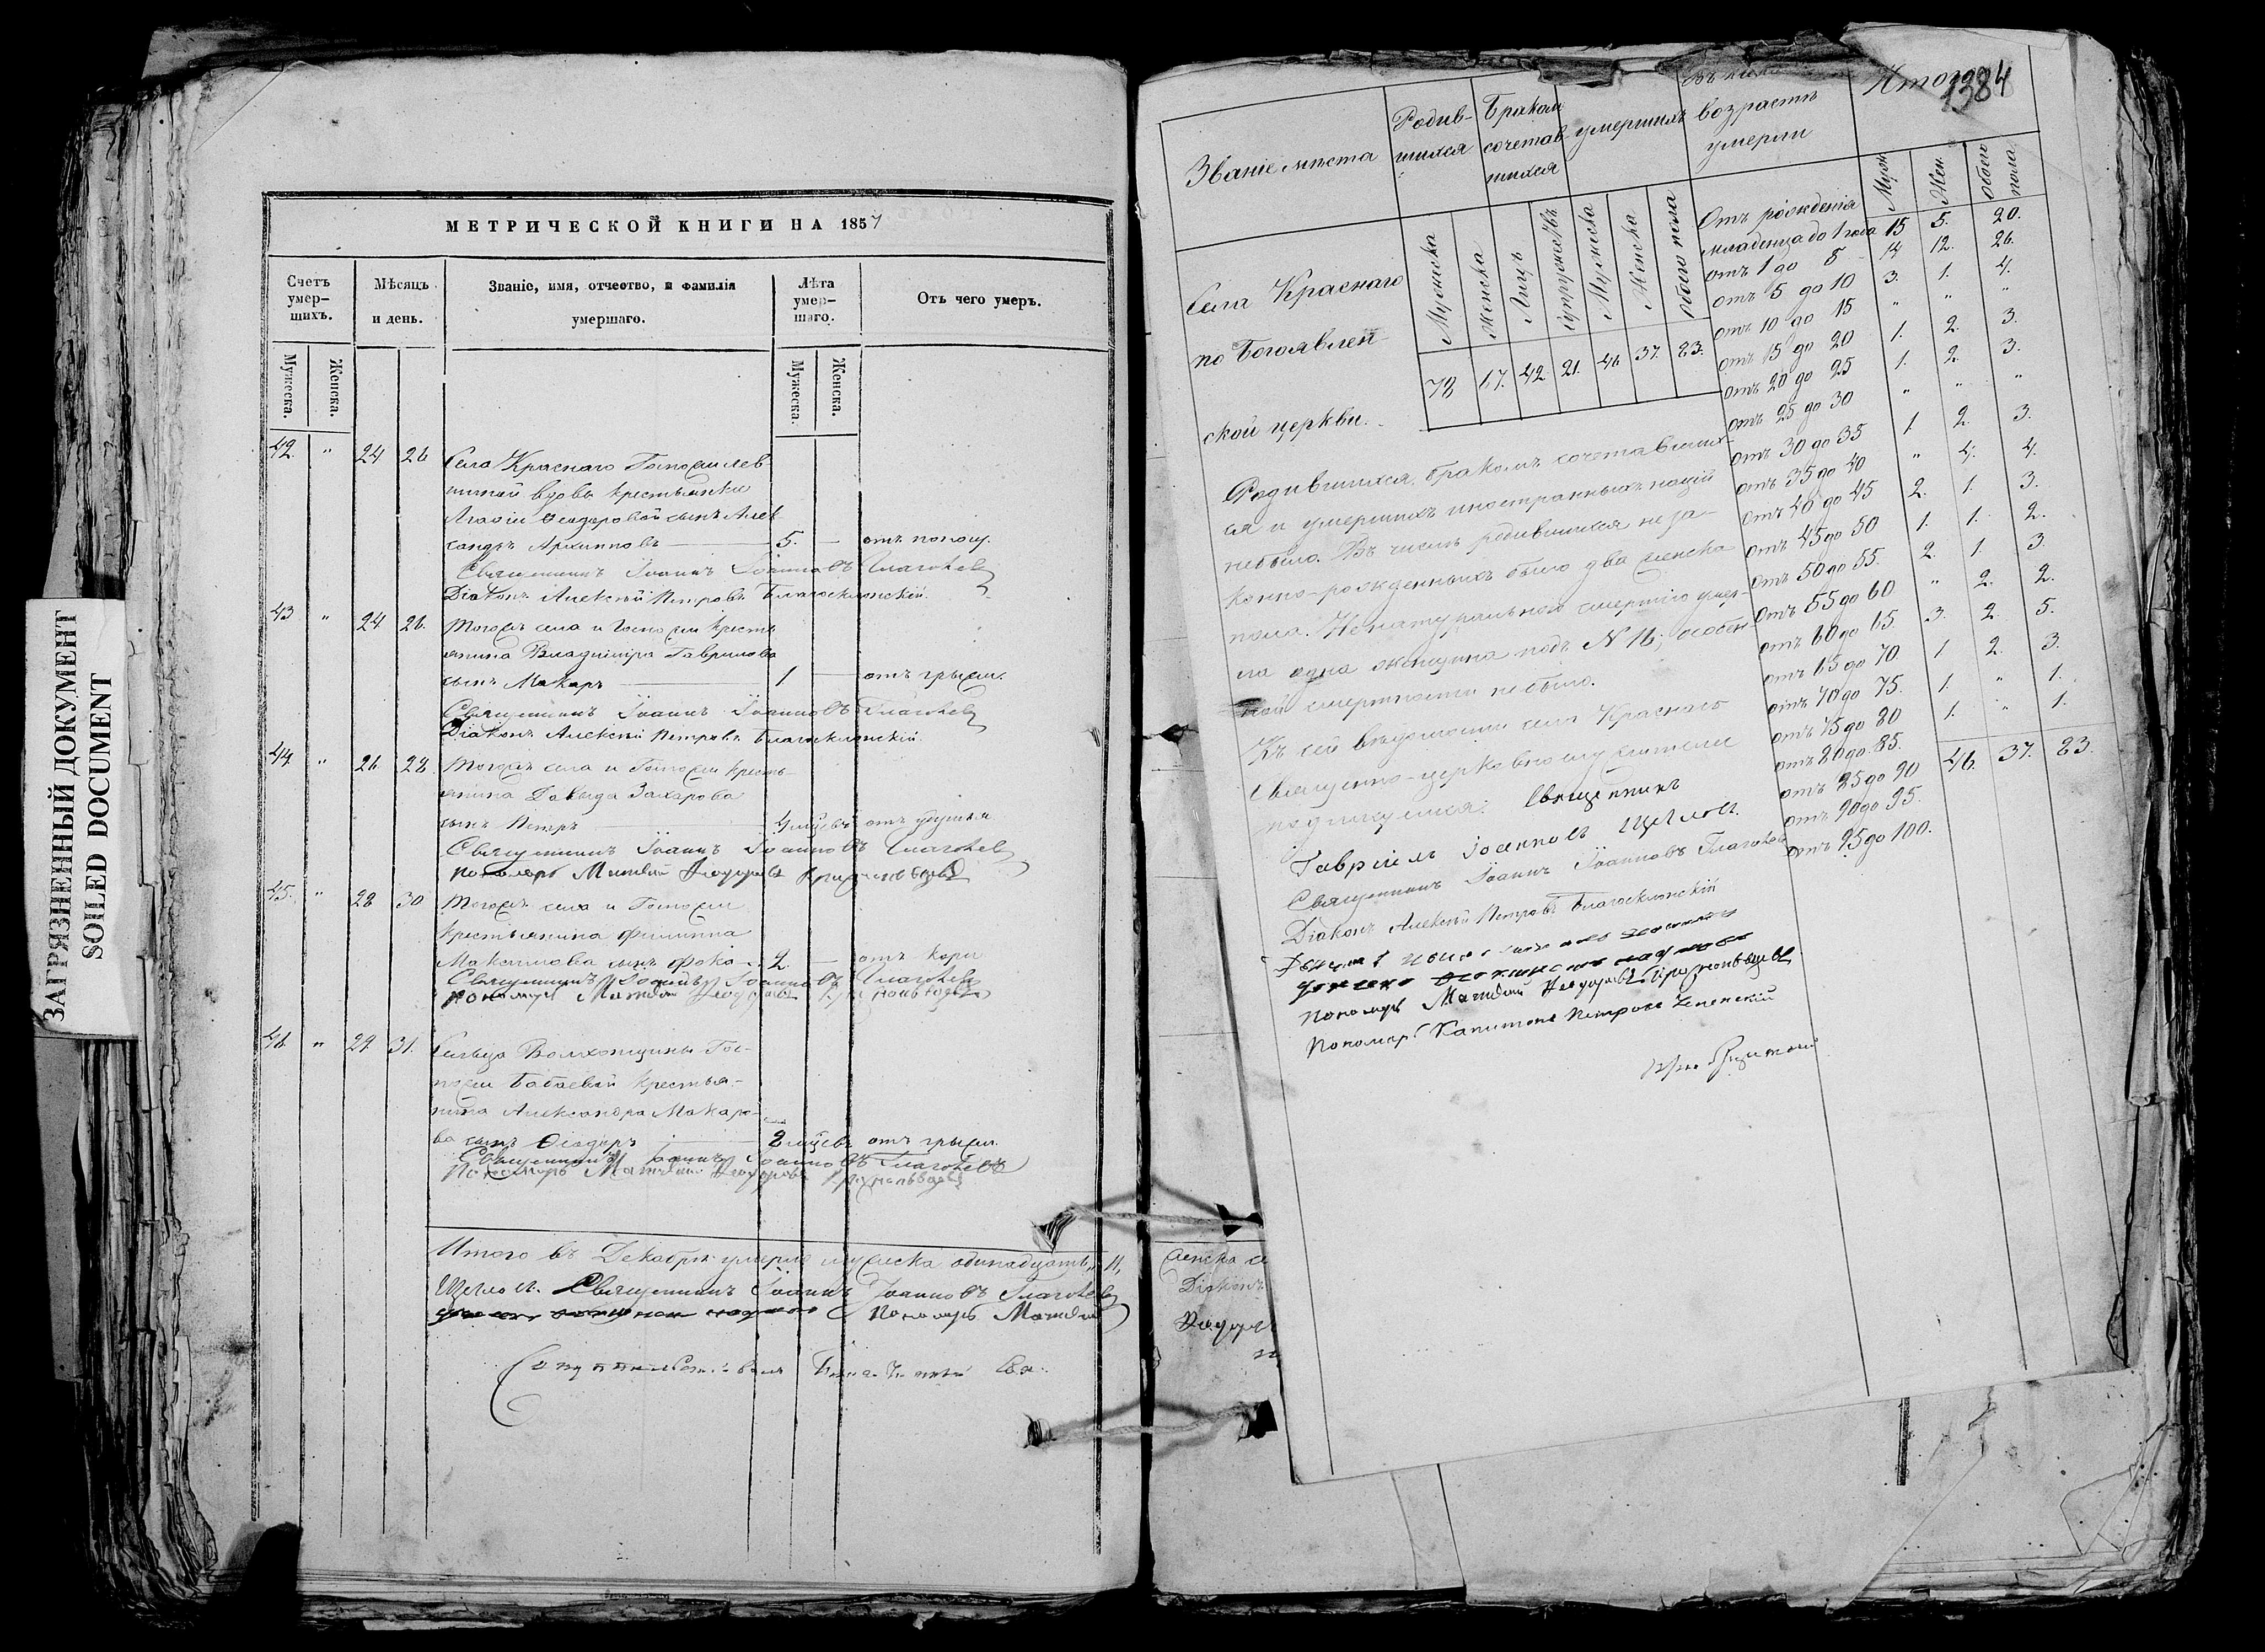 ЗАГРЯЗНЕННЫЙ ДОКУМЕНТ
SOILED DOCUMENT
МЕТРИЧЕСКОЙ КНИГИ НА 1857
Счетъ умер-шихъ.
Мѣсяцъ и день.
Званіе, имя, отчество, и фамилія умершаго.
Лѣта умер-шаго.
Отъ чего умеръ.
Мужеска.
Женска.
Мужеска.
Женска.
42. " 24 26 Села Краснаго Госпожи
вдовы крестьянки
Агафіи Ѳеодоровой сынъ Алек
сандръ Архиповъ 5. отъ поносу.
Священникъ Іоаннъ Іоанновъ Глаголевъ
Діаконъ Алексѣй Петровъ Благосклонскій.
43 " 24 26. Тогожъ села и Госпожи кресть
янина Владиміра Гаврилова
сынъ Макаръ 1 отъ грыжи.
Священникъ Іоаннъ Іоанновъ Глаголевъ
Діаконъ Алексѣй Петровъ Благосклонскій.
44 " 26 28 Тогожъ села и Госпожи кресть-
янина Давыда Захарова
сынъ Петръ отъ удушья
Священникъ Іоаннъ Іоанновъ Глаголевъ
Пономарь Матвѣй Ѳеодоровъ
45. " 28 30 Тогожъ села и Госпожи
крестьянина Филиппа
Максимова сынъ Фока 2. отъ кори
Священникъ Іоаннъ Іоанновъ Глаголевъ
Пономарь Матвѣй Ѳеодоровъ
46 " 29 31. Сельца Волхонщины Гос-
пожи Бабаевой крестья-
нина Александра Макаро-
ва сынъ Ѳеодоръ 8 мѣсевъ отъ грыжи.
Священникъ Іоаннъ Іоанновъ Глаголевъ
Пономарь Матвѣй Ѳеодоровъ
Итого въ Декабрѣ умерло мужеска одинадцать, 11,
Щеглов. Священникъ Іоаннъ Іоанновъ Глаголевъ
Пономарь Матвѣй
женска
Діаконъ
1384
Званіе мѣста
Родив-шихся
Бракомъ сочетав-шихся
умершихъ
возрастѣ умерли
Итого
Мужеска
Женска
Лицъ
супружествъ
Мужеска
Женска
Обоего пола
Муж.
Жен.
Обоего пола
Села Краснаго
по Богоявлен-
ской церкви.
78 67. 42 21. 46 37. 83.
Отъ рожденія
младенца до 1 года 15 5. 20.
отъ 1 до 5 14 12. 26.
отъ 5 до 10 3. 1. 4.
отъ 10 до 15 " " "
отъ 15 до 20 1. 2. 3.
отъ 20 до 25 1. 2. 3.
отъ 25 до 30 " " "
отъ 30 до 35 1 2. 3.
отъ 35 до 40 " 4. 4.
отъ 40 до 45 2. 1. 3.
отъ 45 до 50 1. 1. 2.
отъ 50 до 55. 2. 1. 3
отъ 55 до 60 " 2. 2.
отъ 60 до 65. 3. 2 5.
отъ 65 до 70. 1 2. 3.
отъ 70 до 75. 1. " 1.
отъ 75 до 80 1. " 1.
отъ 80 до 85.
отъ 85 до 90
отъ 90 до 95.
отъ 95 до 100.
46. 37. 83.
Родившихся, бракомъ сочетавших-
ся и умершихъ иностранныхъ націй
небыло. Въ числѣ родившихся неза-
конно-рожденныхъ было два женска
пола. Ненатуральною смертію умер-
ла одна женщина подъ N 16; особен-
ной смертности небыло.
Къ сей вѣдомости села Краснаго
Священно-церковнослужители
подписуемся: Священникъ
Гавріилъ Іоанновъ Щегловъ.
Священникъ Іоаннъ Іоанновъ Глаголевъ
Діаконъ Алексѣй Петровъ Благосклонскій
Пономарь Матвѣй Ѳеодоровъ
Пономарь Капитонъ Петровъ